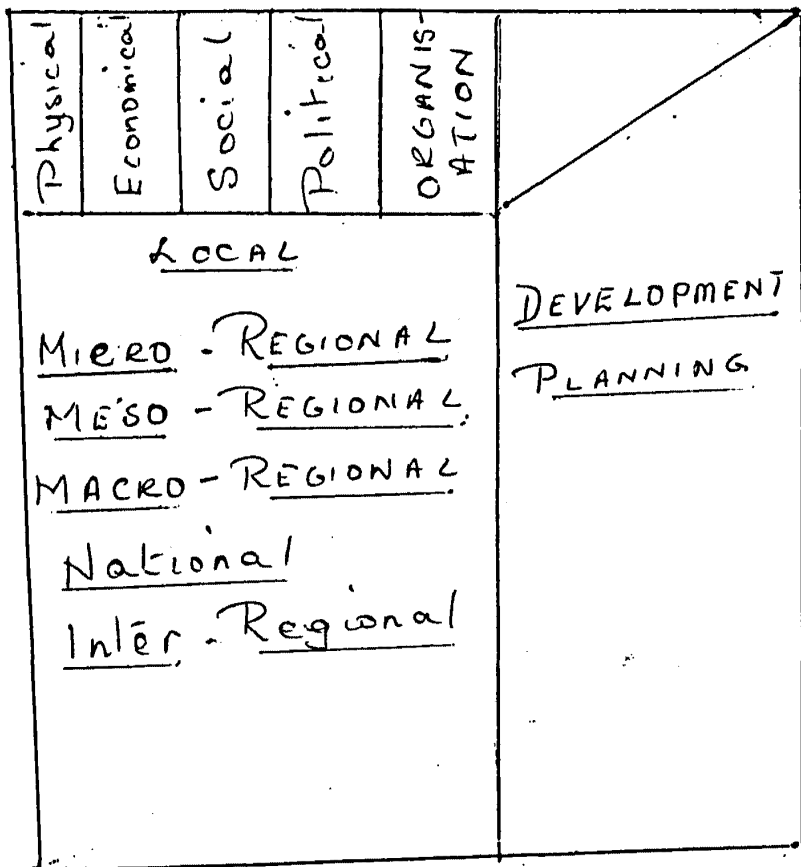 Physical
Economical
Social
Political
ORGANIS-
ATION
LOCAL
MICRO - REGIONAL
MESO - REGIONAL
MACRO - REGIONAL
National
Inter - Regional
DEVELOPMENT
PLANNING